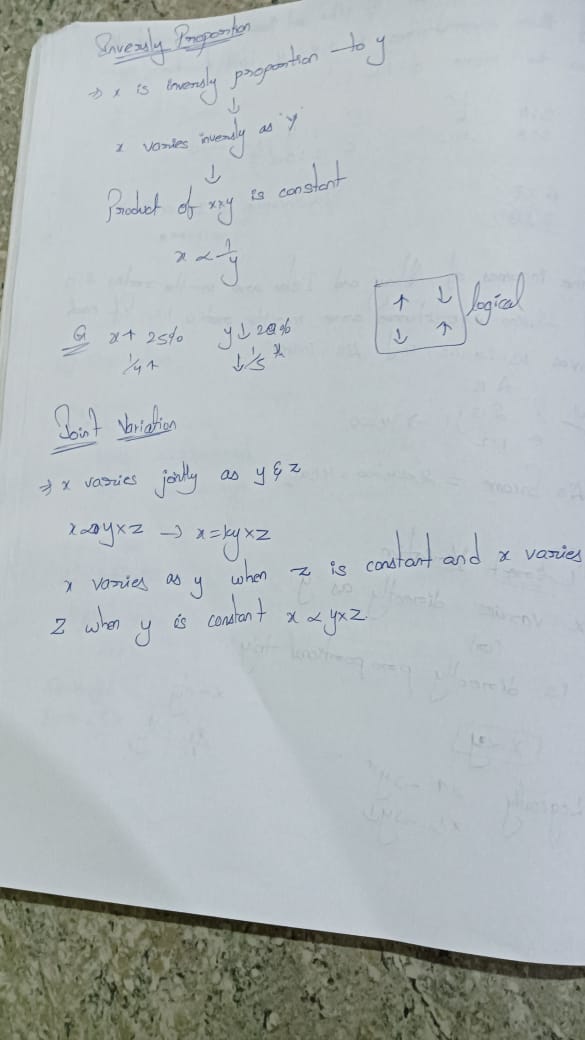 Inversly Proportion
⇒ x is inversly proportion to y
↓
x varies inversly as 'y'
↓
Product of x×y is constant
x ∝ 1/y
x↑ 25% y↓ 20%
1/4↑ ↓1/5
↑ ↓ logical
↓ ↑
Joint Variation
⇒ x varies jointly as y & z
x ∝ y×z → x = ky×z
x varies as y when z is constant and x varies
z when y is constant x ∝ y×z.